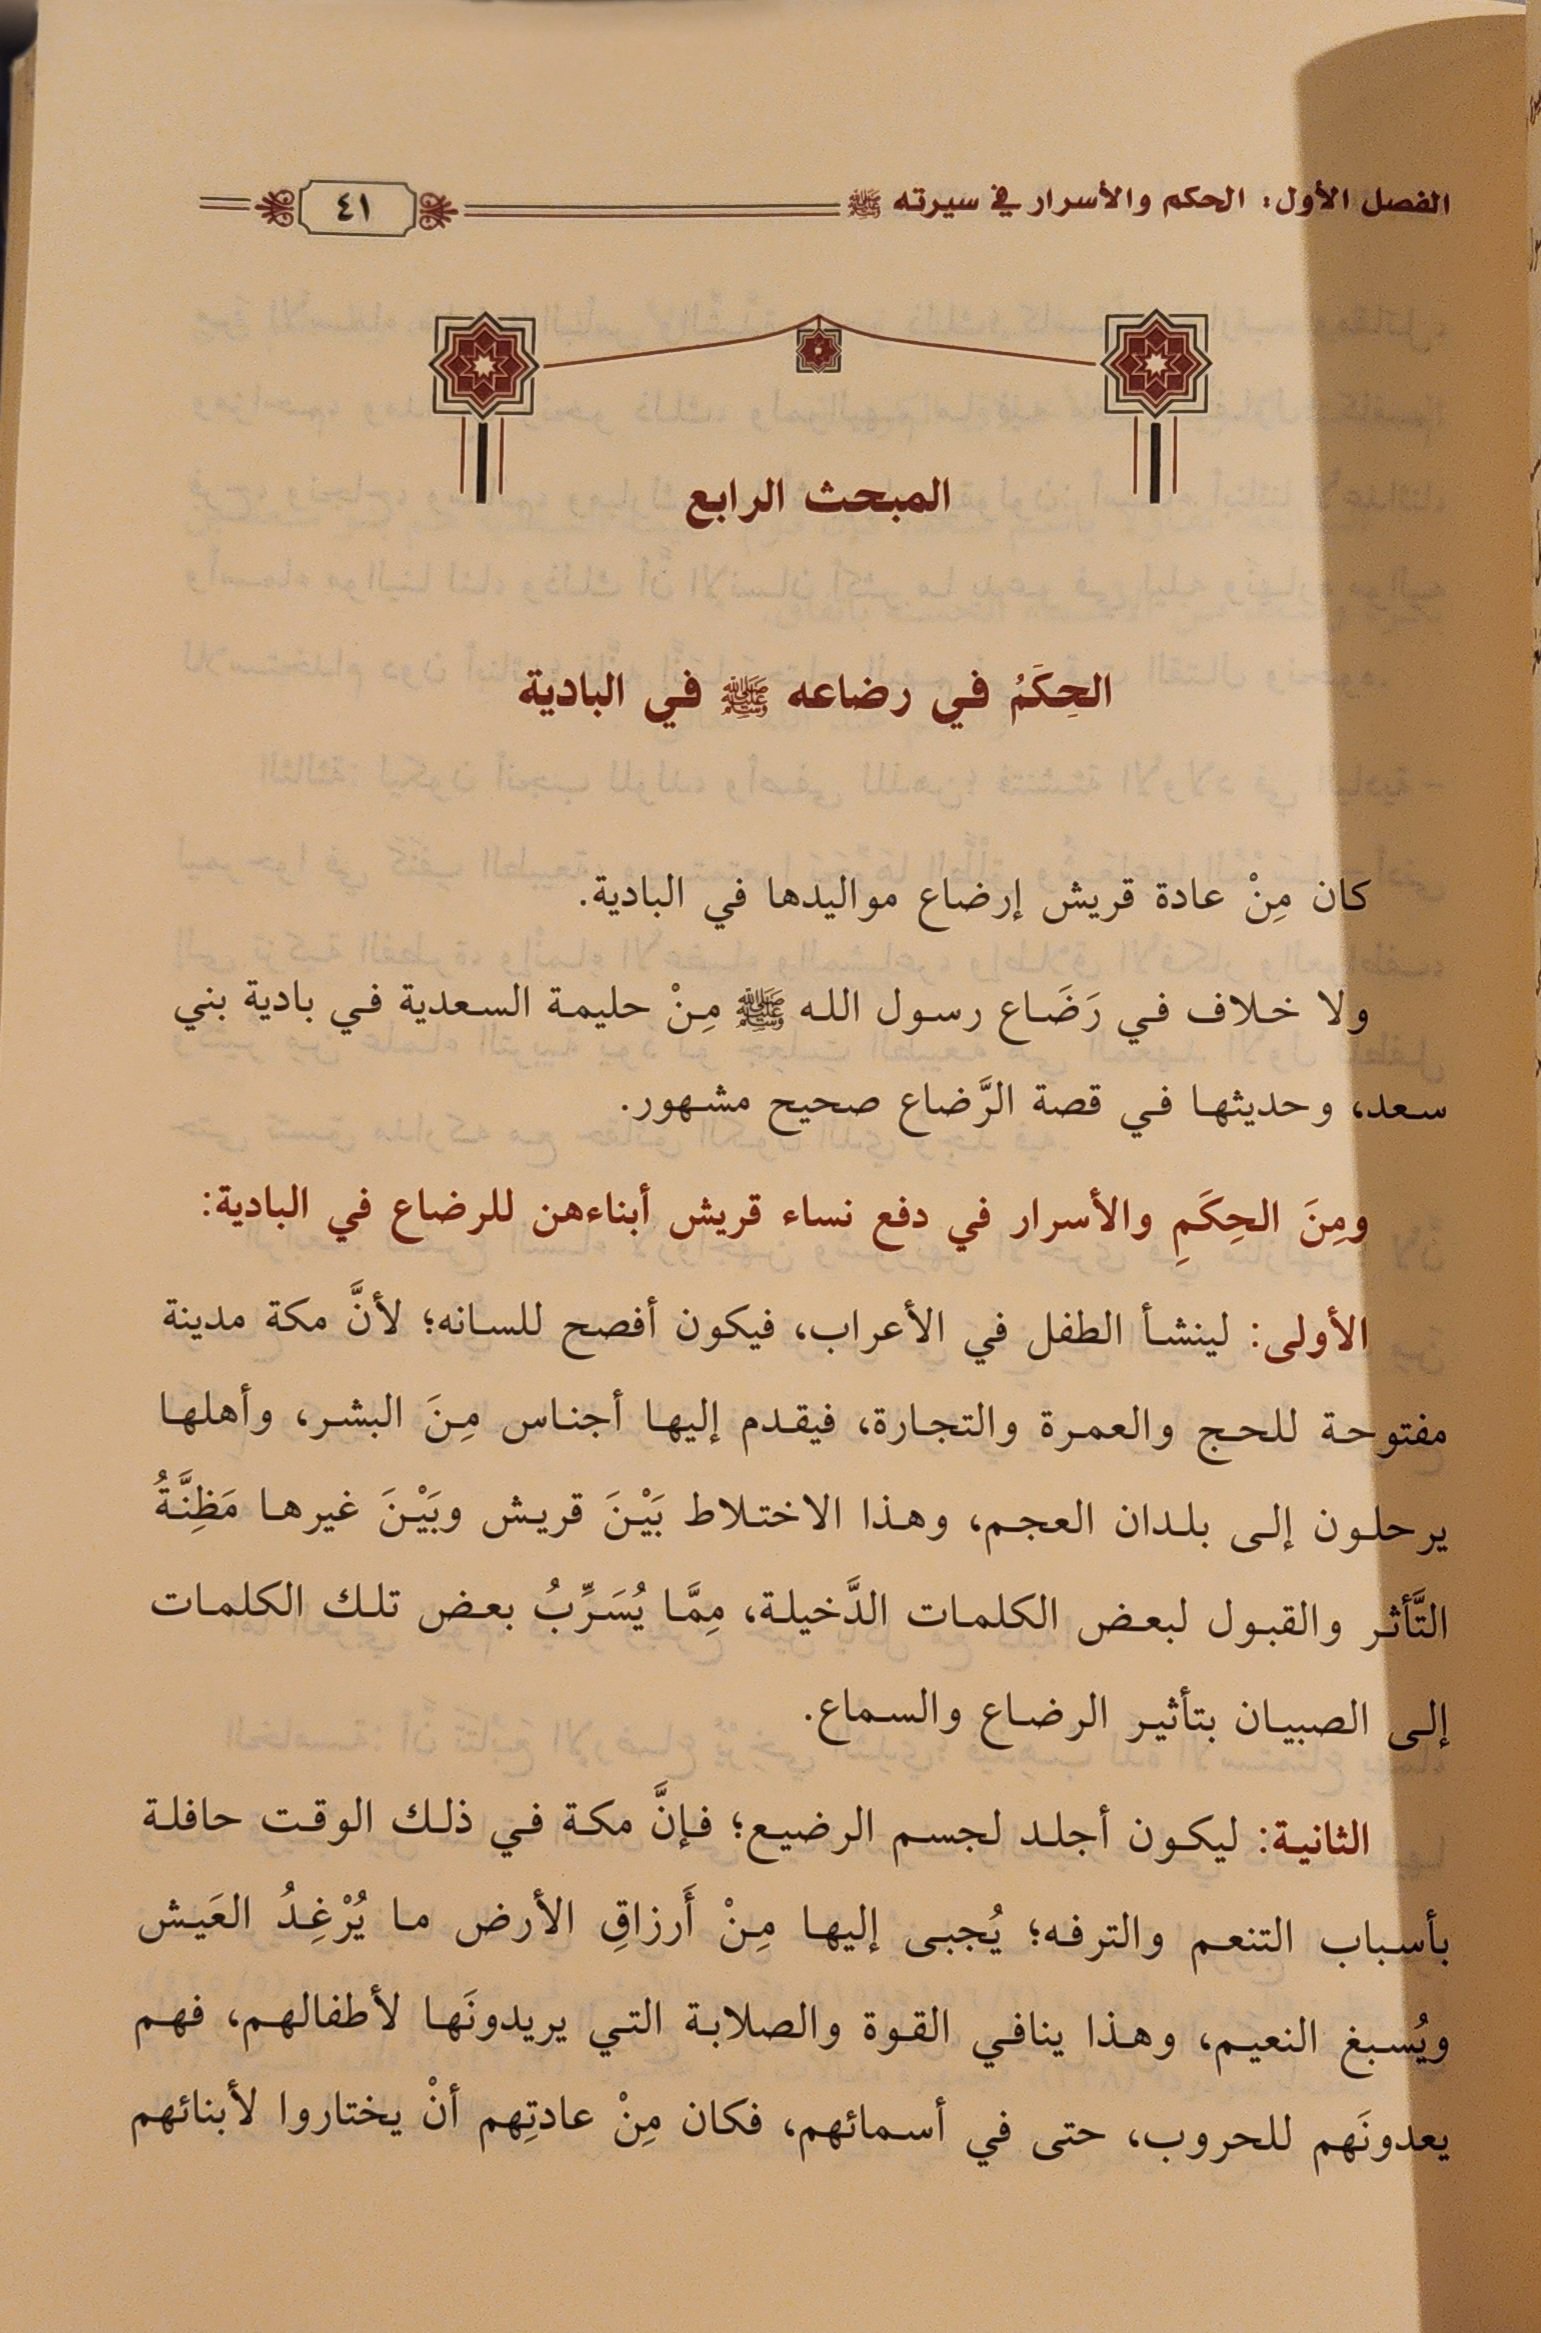 الفصل الأول: الحكم والأسرار في سيرته ﷺ
٤١
المبحث الرابع
الحِكَمُ في رضاعه ﷺ في البادية
كان مِنْ عادة قريش إرضاع مواليدها في البادية.
ولا خلاف في رَضَاع رسول الله ﷺ مِنْ حليمة السعدية في بادية بني
سعد، وحديثها في قصة الرَّضاع صحيح مشهور.
ومِنَ الحِكَمِ والأسرار في دفع نساء قريش أبناءهن للرضاع في البادية:
الأولى: لينشأ الطفل في الأعراب، فيكون أفصح للسانه؛ لأنَّ مكة مدينة
مفتوحة للحج والعمرة والتجارة، فيقدم إليها أجناس مِنَ البشر، وأهلها
يرحلون إلى بلدان العجم، وهذا الاختلاط بَيْنَ قريش وبَيْنَ غيرها مَظِنَّةُ
التَّأثر والقبول لبعض الكلمات الدَّخيلة، مِمَّا يُسَرِّبُ بعض تلك الكلمات
إلى الصبيان بتأثير الرضاع والسماع.
الثانية: ليكون أجلد لجسم الرضيع؛ فإنَّ مكة في ذلك الوقت حافلة
بأسباب التنعم والترفه؛ يُجبى إليها مِنْ أَرزاقِ الأرض ما يُرْغِدُ العَيش
ويُسبغ النعيم، وهذا ينافي القوة والصلابة التي يريدونَها لأطفالهم، فهم
يعدونَهم للحروب، حتى في أسمائهم، فكان مِنْ عادتِهم أنْ يختاروا لأبنائهم